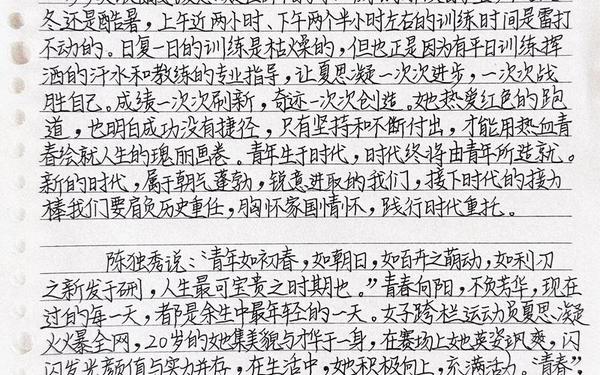 冬还是酷暑，上午近两小时、下午两个半小时左右的训练时间是雷打
不动的。日复一日的训练是枯燥的，但也正是因为有平日训练挥
洒的汗水和教练的专业指导，让夏思凝一次次进步，一次次战
胜自己。成绩一次次刷新，奇迹一次次创造。她热爱红色的跑
道，也明白成功没有捷径，只有坚持和不断付出，才能用热血青
春绘就人生的瑰丽画卷。青年生于时代，时代终将由青年所造就。
新的时代，属于朝气蓬勃，锐意进取的我们，接下时代的接力
棒我们要肩负历史重任，胸怀家国情怀，践行时代重托。
陈独秀说：“青年如初春，如朝日，如百卉之萌动，如利刃
之新发于硎，人生最可宝贵之时期也。”青春向阳，不负芳华，现在
过的每一天，都是余生中最年轻的一天。女子跨栏运动员夏思凝
火爆全网，20岁的她集美貌与才华于一身，在赛场上她英姿飒爽，闪
闪发光颜值与实力并存，在生活中，她积极向上，充满活力。“青春”，